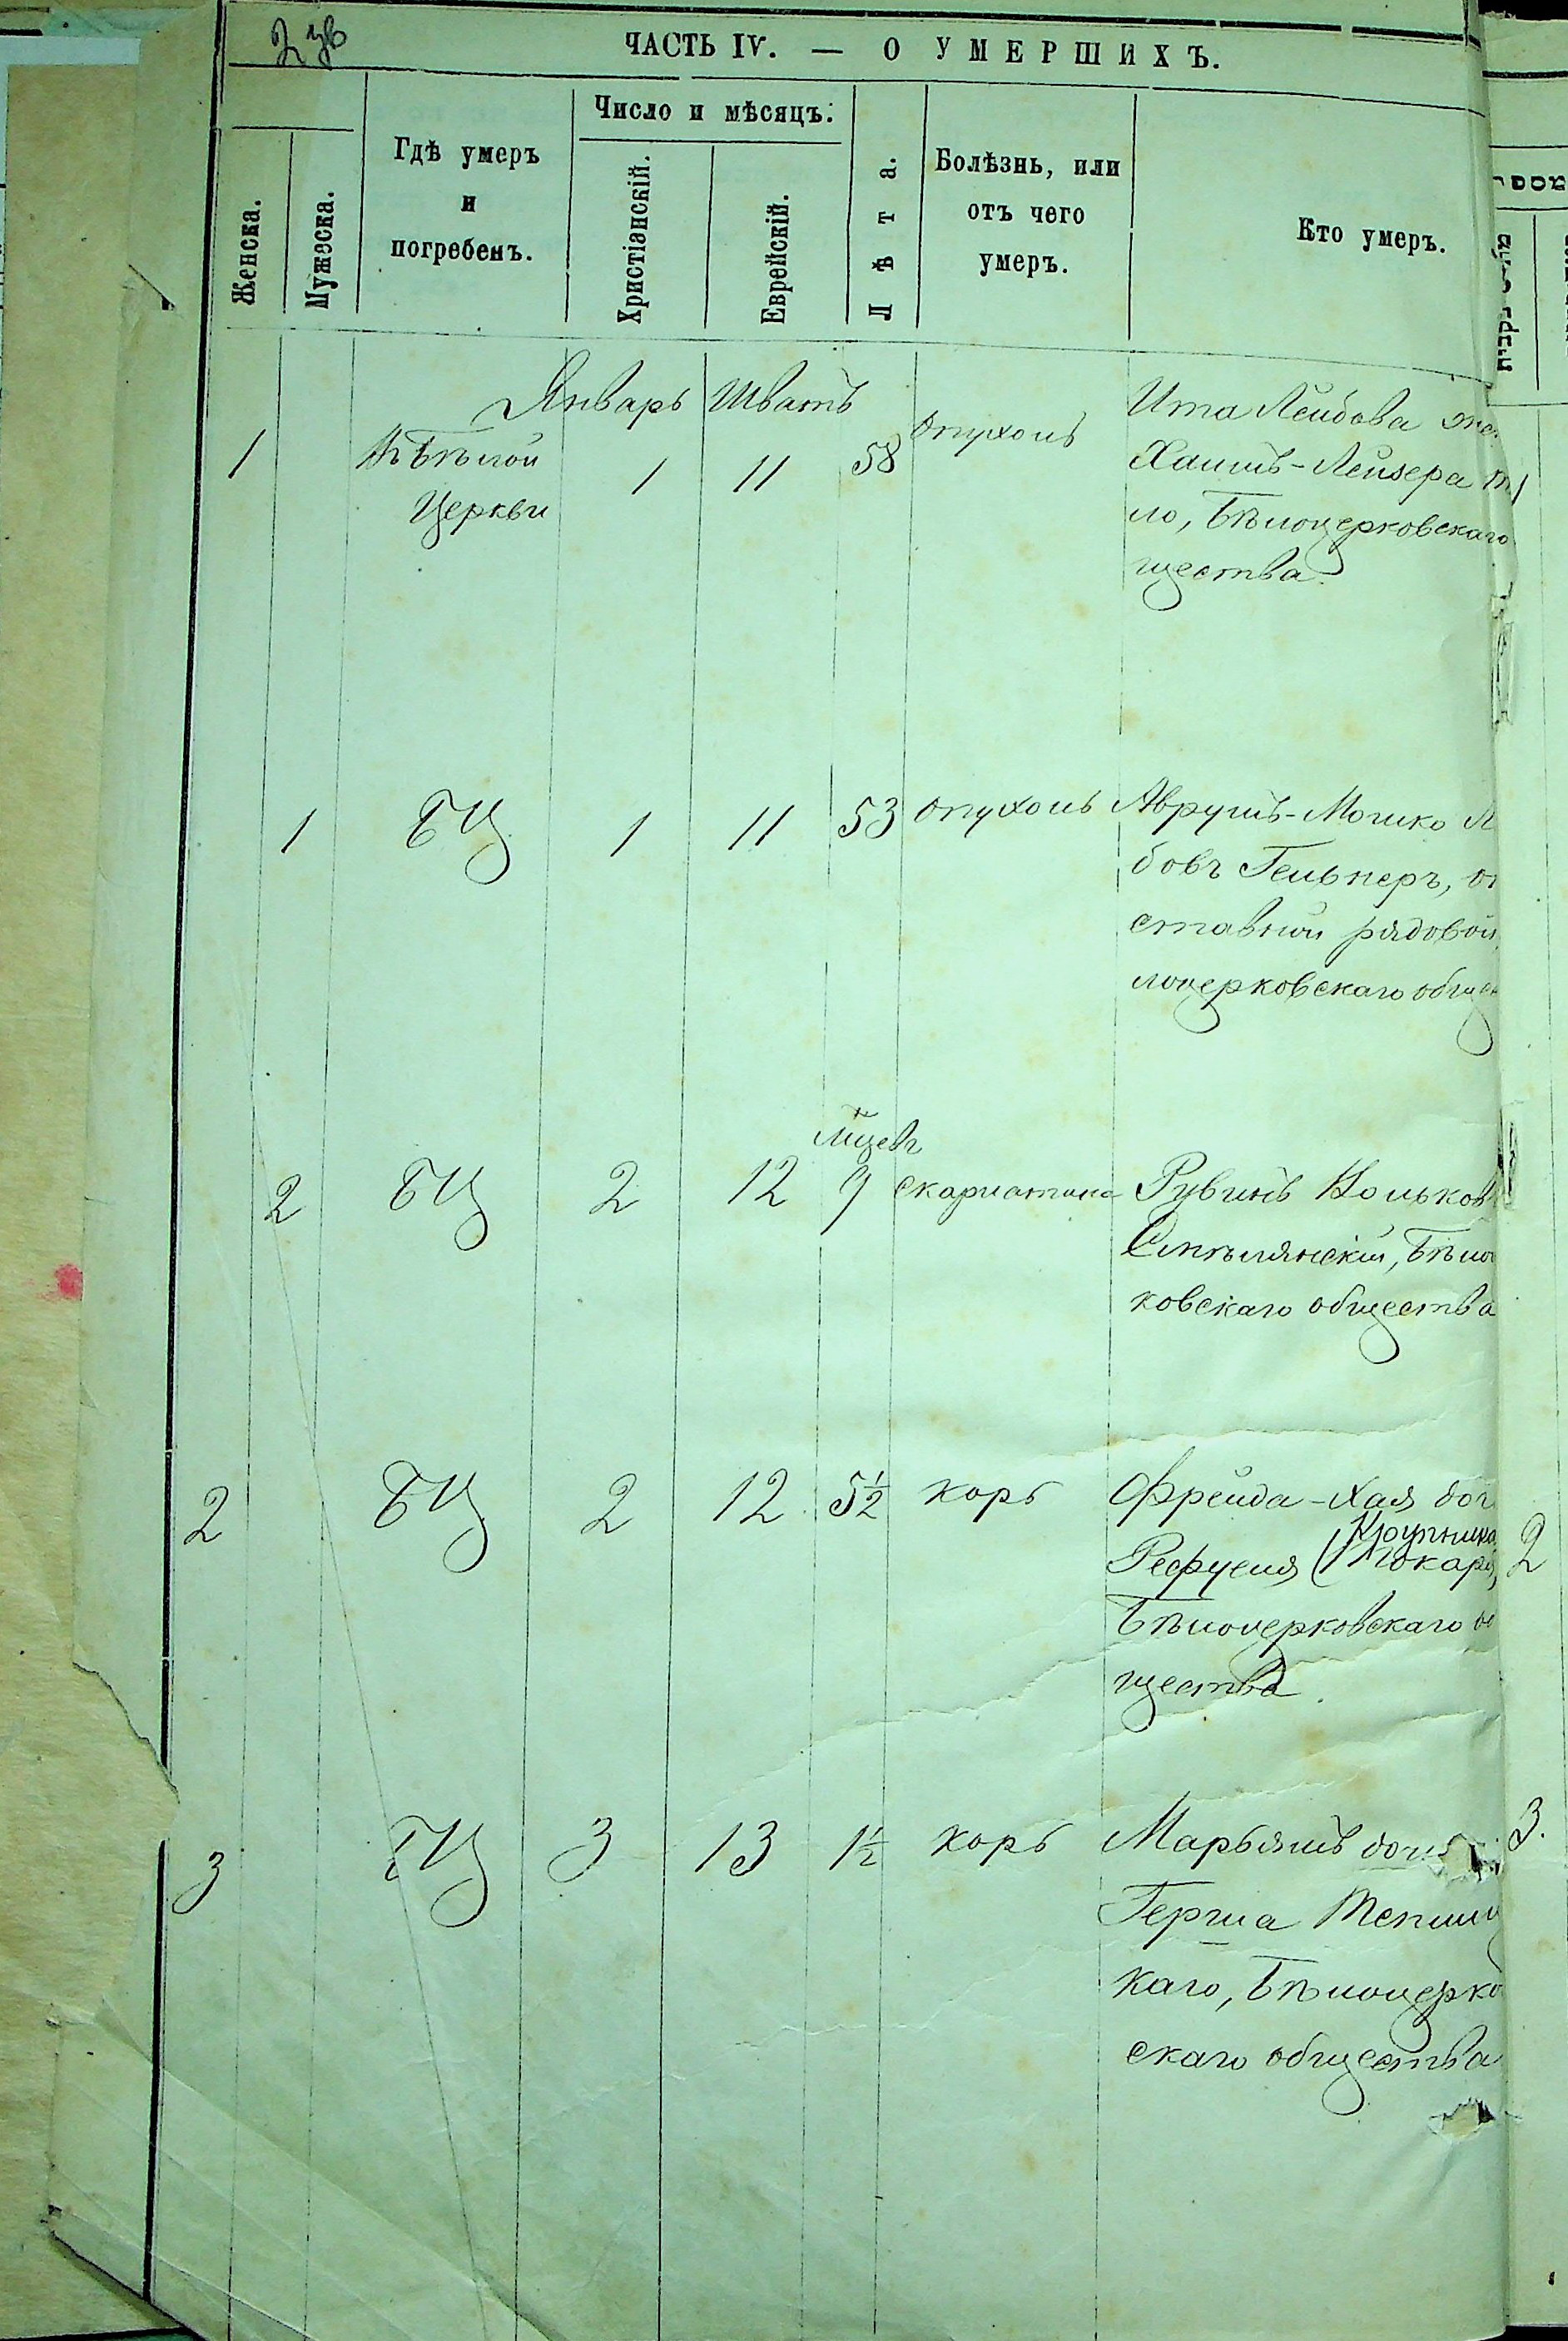 ЧАСТЬ IV. — О УМЕРШИХЪ.
Женска.
Мужеска.
Гдѣ умеръ
и
погребенъ.
Число и мѣсяцъ.
Христіанскій.
Еврейскій.
Лѣта.
Болѣзнь, или
отъ чего
умеръ.
Кто умеръ.
Январь Шватъ
1 Въ Бѣлой 1 11 58 опухоль Ита Лейбова
Церкви Хаимъ-Лейзера
ло, Бѣлоцерковскаго
щества.
1 БЦ 1 11 53 опухоль Аврумъ-Мошко
бовъ Гельнеръ, от
ставной рядовой,
лоцерковскаго общес
мцевъ
2 БЦ 2 12 9 скарлатина Рувинъ Волько
Смѣлянскій, Бѣло
ковскаго общества
2 БЦ 2 12 5½ корь Фрейда-Хая доч
Крупника
Рефуеля (Токаря, 2
Бѣлоцерковскаго об
щества.
3 БЦ 3 13 1½ корь Марьямъ доч 3.
Герша Теплиц
каго, Бѣлоцерко
скаго общества